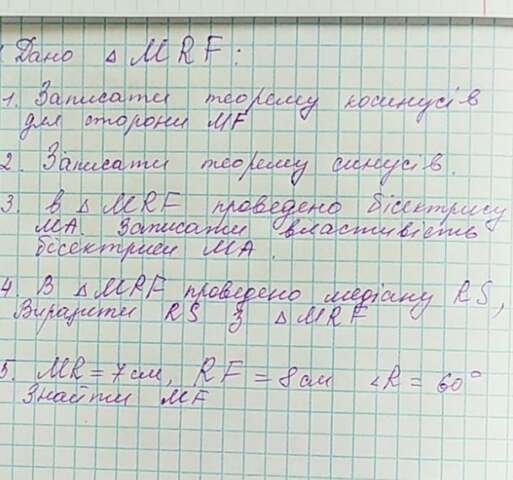 Дано △ MRF:
1. Записати теорему косинусів
для сторони MF
2. Записати теорему синусів.
3. В △ MRF проведено бісектрису
MA. Записати властивість
бісектриси MA.
4. В △MRF проведено медіану RS,
Виразити RS з △ MRF
5. MR = 7 см, RF = 8 см ∠R = 60°
Знайти MF